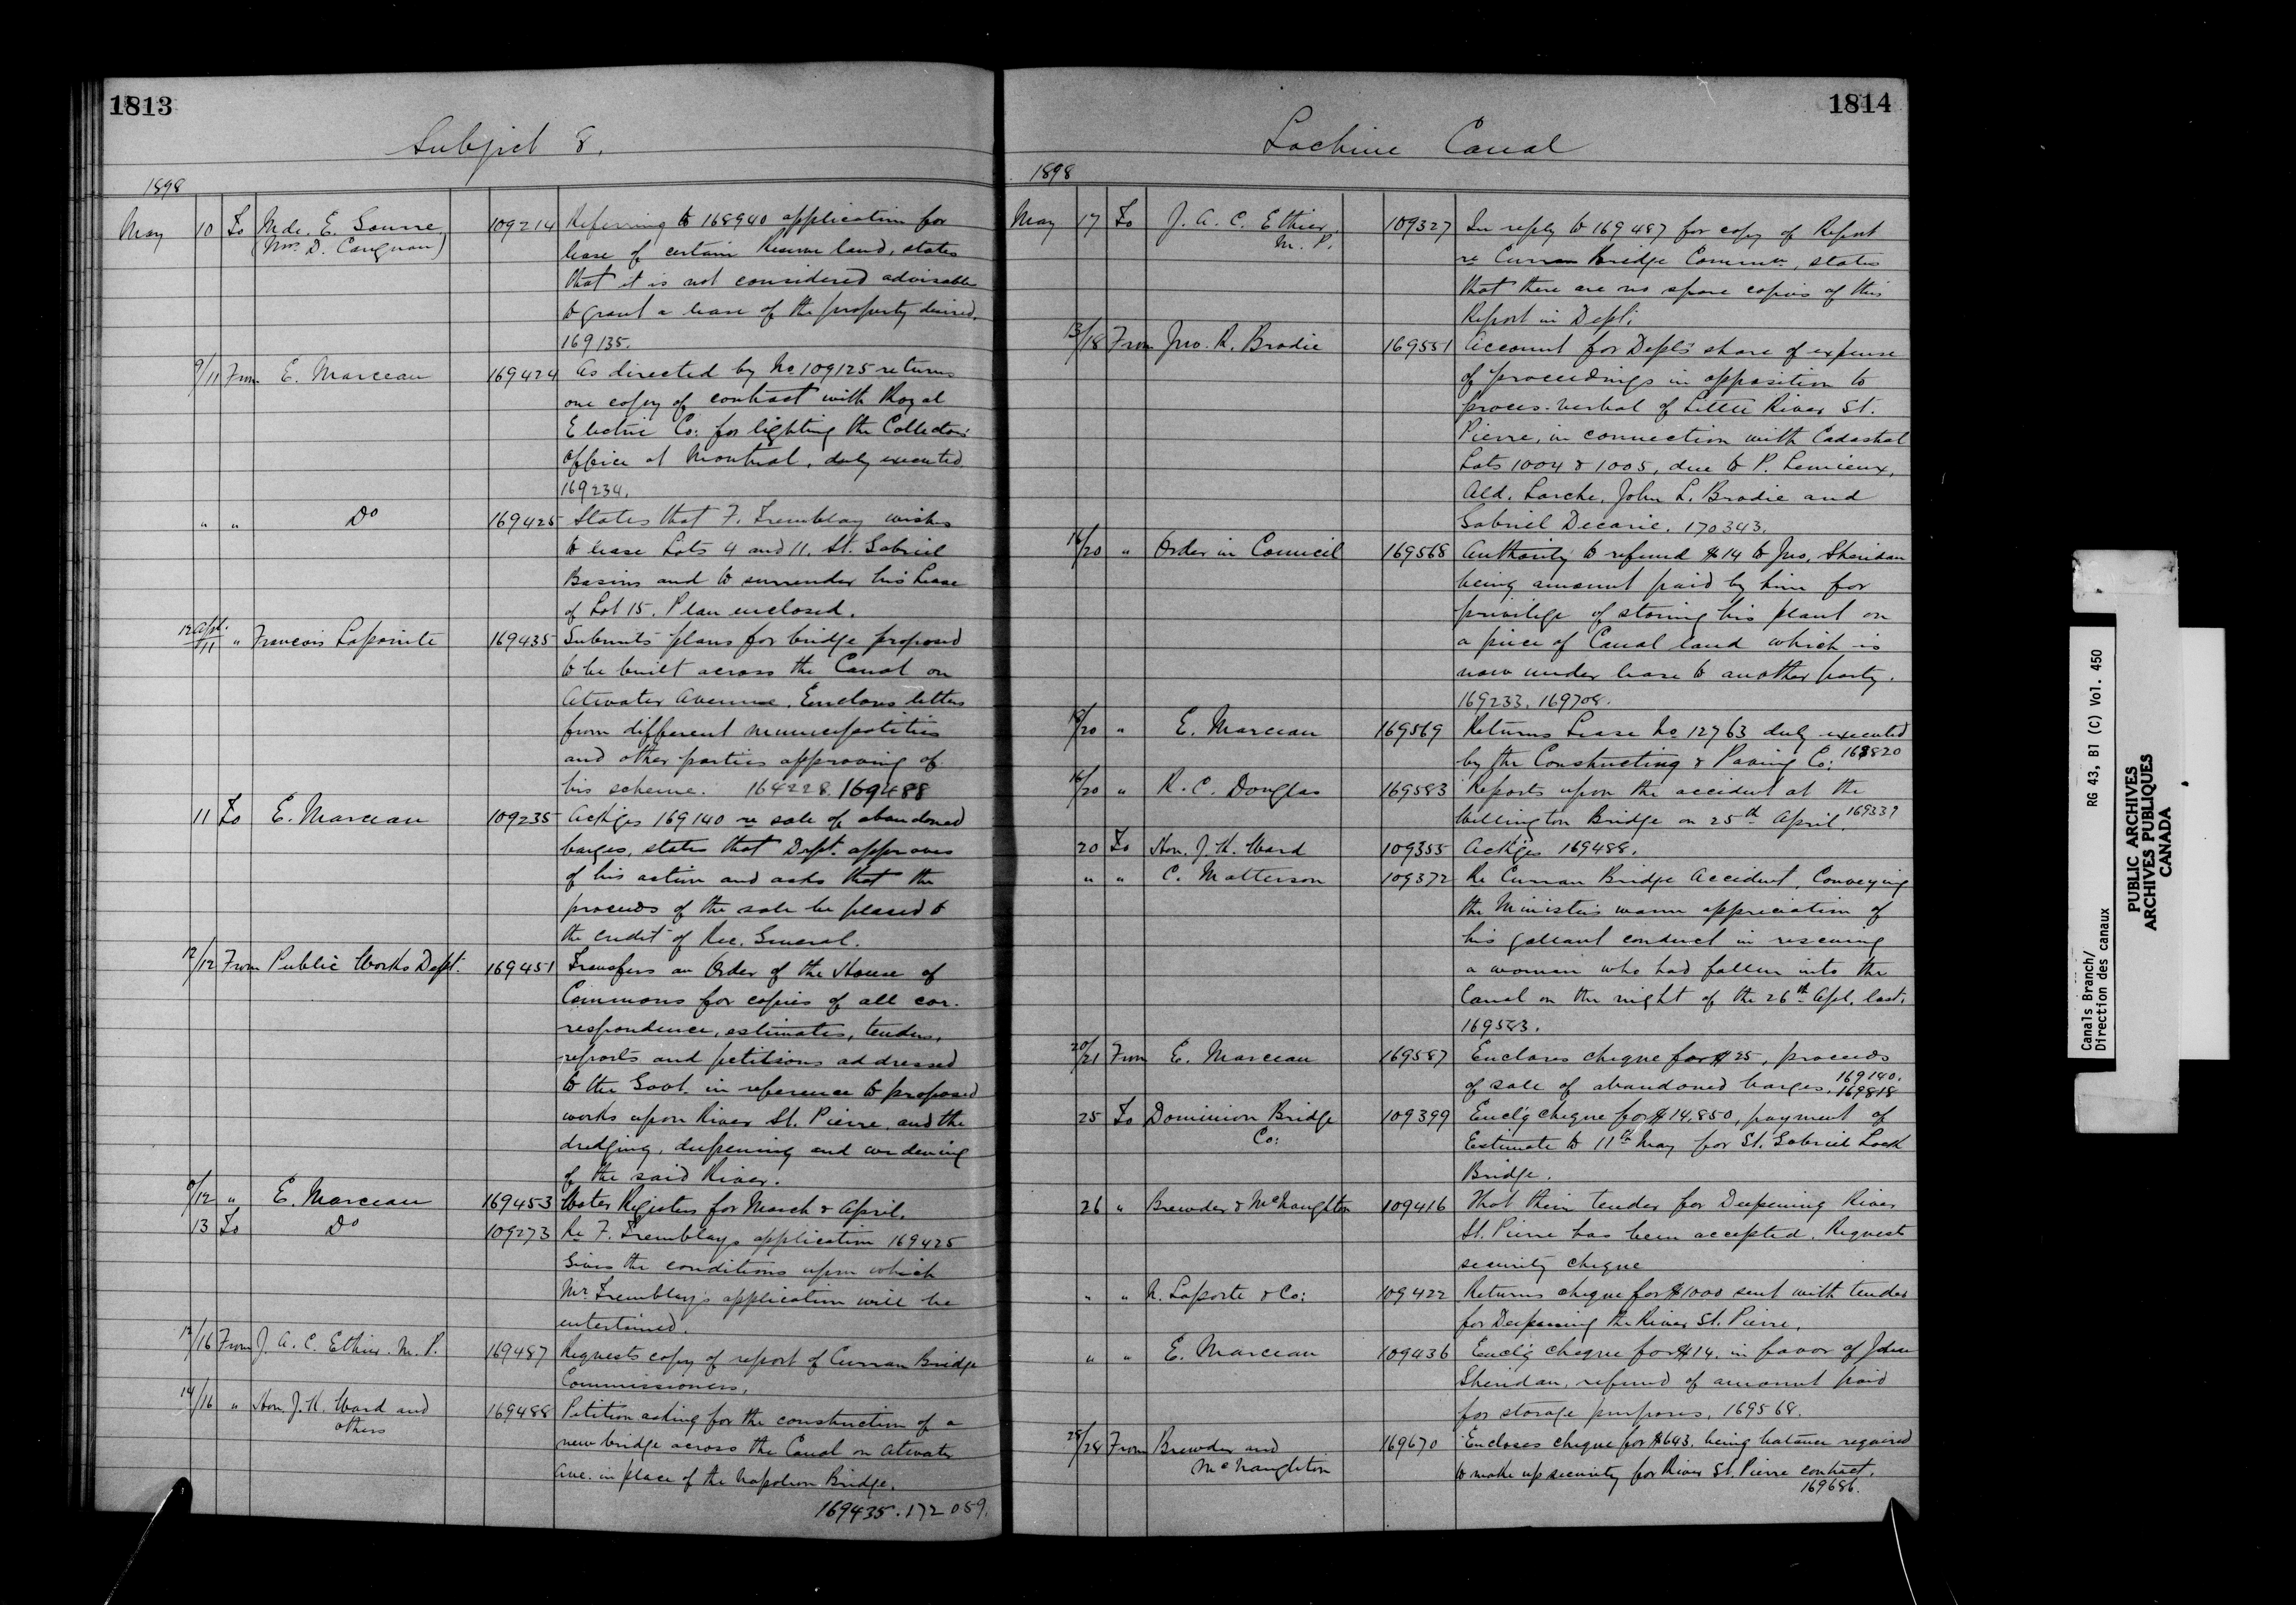 1813
Subject 8.
1898
May 10 To Mde. E. Sourre 109214 Referring to 168940 application for
(Mrs. D. Carignan) lease of certain Reserve land, states
that it is not considered advisable
to grant a lease of the property desired.
169135.
9/11 From E. Marceau 169424 As directed by No 109125 returns
one copy of contract with Royal
Electric Co: for lighting the Collector's
Office at Montreal, duly executed
169234.
" " Do 169425 States that F. Tremblay wishes
to lease Lots 4 and 11, St. Gabriel
Basins and to surrender his Lease
of Lot 15. Plan enclosed.
12 Apl./11 " Francois Lapointe 169435 Submits plans for bridge proposed
to be built across the Canal on
Atwater Avenue. Encloses letters
from different municipalities
and other parties approving of
his scheme. 164228. 169488
11 To E. Marceau 109235 Ackges 169140 re sale of abandoned
barges, states that Dept. approves
of his action and asks that the
proceeds of the sale be placed to
the credit of Rec. General.
12/12 From Public Works Dept. 169451 Transfers an Order of the House of
Commons for copies of all cor-
respondence, estimates, tenders,
reports and petitions addressed
to the Govt. in reference to proposed
works upon River St. Pierre, and the
dredging, deepening and widening
of the said River.
/12 " E. Marceau 169453 Water Registers for March & April.
13 To Do 109273 Re F. Tremblay's application 169425
Gives the conditions upon which
Mr. Tremblay's application will be
entertained.
12/16 From J. A. C. Ethier. M. P. 169487 Requests copy of report of Curran Bridge
Commissioners.
14/16 " Hon. J. K. Ward and 169488 Petition asking for the construction of a
others new bridge across the Canal on Atwater
Ave. in place of the Napoleon Bridge.
169435. 172059.
1814
Lachine Canal
1898
May 17 To J. A. C. Ethier, 109327 In reply to 169487 for copy of Report
M. P. re Curran Bridge Commrs, states
that there are no spare copies of this
Report in Dept.
13/18 From Jno. R. Brodie 169551 Account for Dept's share of expense
of proceedings in opposition to
proces-verbal of Little River St.
Pierre, in connection with Cadastral
Lots 1004 & 1005, due to P. Lemieux,
Ald. Larche, John L. Brodie and
Gabriel Decarie. 170343.
16/20 " Order in Council 169568 Authority to refund $14 to Jno. Sheridan
being amount paid by him for
privilege of storing his plant on
a piece of Canal land which is
now under lease to another party.
169233. 169708.
18/20 " E. Marceau 169569 Returns Lease No 12763 duly executed
by the Constructing & Paving Co: 168820
16/20 " R. C. Douglas 169583 Reports upon the accident at the
Wellington Bridge on 25th April. 169339
20 To Hon. J. K. Ward 109355 Ackges 169488.
" " C. Matterson 109372 Re Curran Bridge Accident, Conveying
the Minister's warm appreciation of
his gallant conduct in rescuing
a woman who had fallen into the
Canal on the night of the 26th Apl. last.
169583.
20/21 From E. Marceau 169587 Encloses cheque for $25, proceeds
of sale of abandoned barges. 169140.
169818
25 To Dominion Bridge 109399 Encl'g cheque for $14,850, payment of
Co: Estimate to 11th May for St. Gabriel Lock
Bridge.
26 " Brewder & McNaughton 109416 That their tender for Deepening River
St. Pierre has been accepted. Requests
security cheque
" " N. Laporte & Co: 109422 Returns cheque for $1000 sent with tender
for Deepening the River St. Pierre.
" " E. Marceau 109436 Encl'g cheque for $14. in favor of John
Sheridan, refund of amount paid
for storage purposes. 169568.
28/28 From Brewder and 169670 Encloses cheque for $643. being balance required
McNaughton to make up security for River St. Pierre contract.
169686.
Canals Branch/
Direction des canaux
RG 43, B1 (C) Vol. 450
PUBLIC ARCHIVES
ARCHIVES PUBLIQUES
CANADA